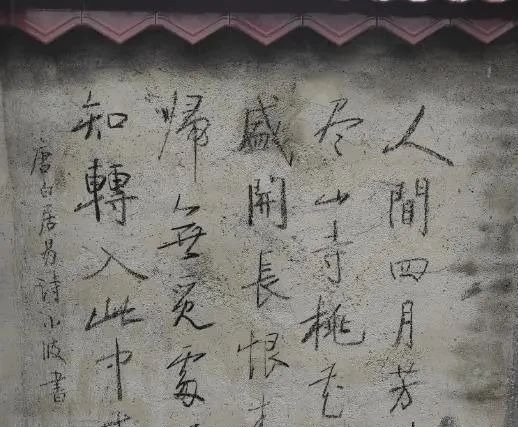 人間四月芳
尽山寺桃花
盛開長恨春
帰無覓處
知轉入此中
唐白居易詩小波書